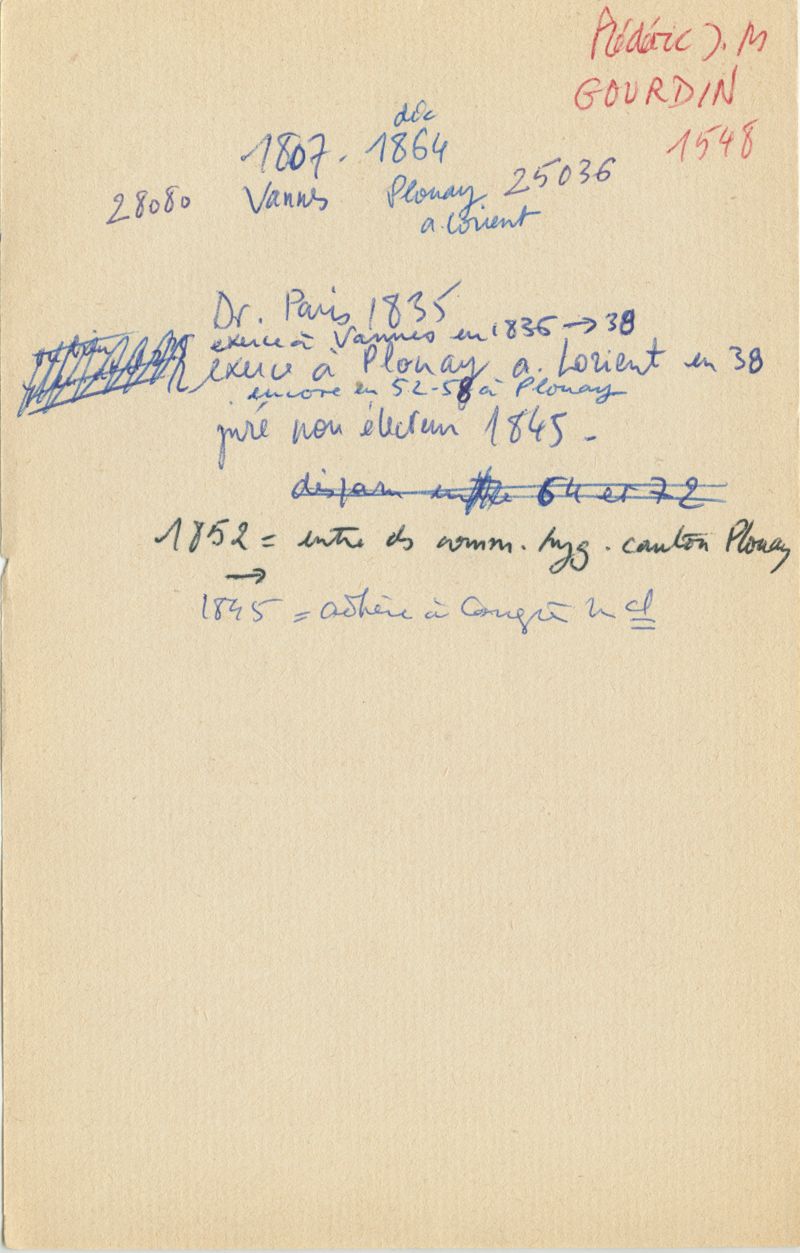 Frédéric J. M
GOURDIN
1548
déc
1807. 1864
28080 Vannes Plouay 25036
a. Lorient
Dr. Paris 1835
exerce à Vannes en 1836 → 38
exerce à Plouay a. Lorient en 38
encore en 52-58 à Plouay
juré non électeur 1845 -
disparu entre 64 et 72
1852 = entre ds comm. hyg. canton Plouay
→
1845 = adhère à Congrès